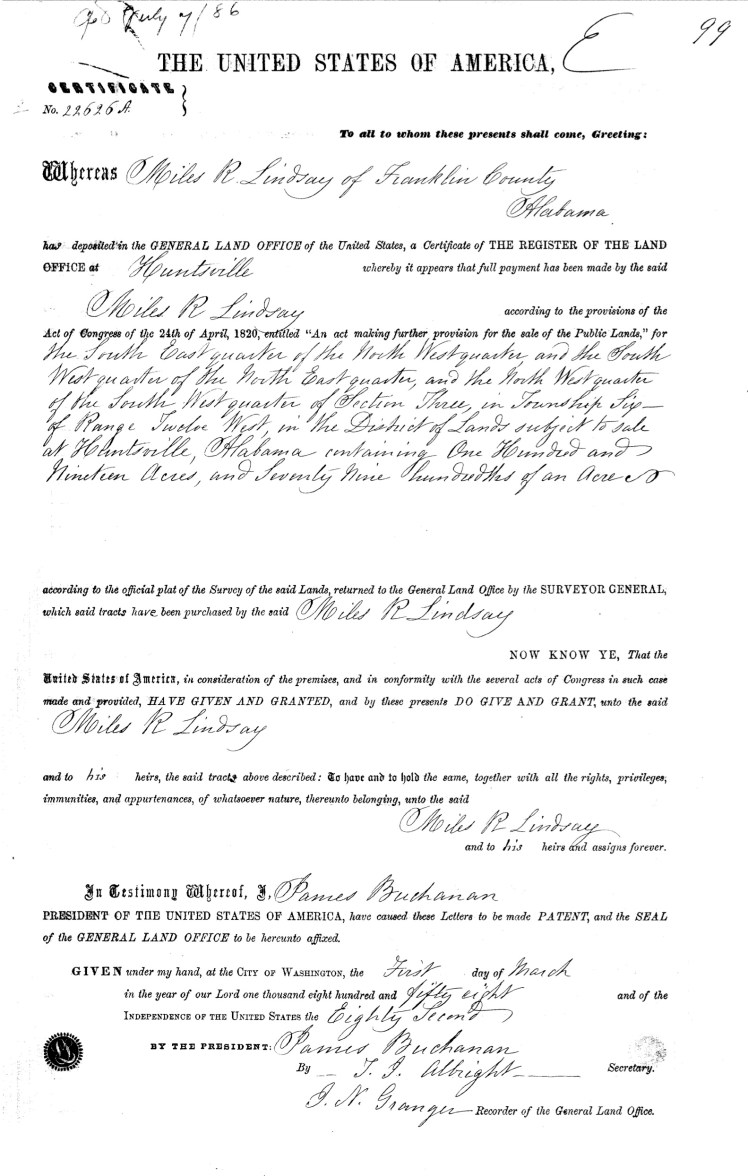 July 7/86
99
THE UNITED STATES OF AMERICA,
E
CERTIFICATE
No. 22626 A.
To all to whom these presents shall come, Greeting:
Whereas Miles R Lindsay of Franklin County
Alabama
has deposited in the GENERAL LAND OFFICE of the United States, a Certificate of THE REGISTER OF THE LAND
OFFICE at Huntsville whereby it appears that full payment has been made by the said
Miles R Lindsay according to the provisions of the
Act of Congress of the 24th of April, 1820, entitled "An act making further provision for the sale of the Public Lands," for
the South East quarter of the North West quarter, and the South
West quarter of the North East quarter, and the North West quarter
of the South West quarter of Section Three, in Township Six
of Range Twelve West, in the District of Lands subject to sale
at Huntsville, Alabama containing One Hundred and
Nineteen Acres, and Seventy Nine hundredths of an Acre
according to the official plat of the Survey of the said Lands, returned to the General Land Office by the SURVEYOR GENERAL,
which said tracts have been purchased by the said Miles R Lindsay
NOW KNOW YE, That the
United States of America, in consideration of the premises, and in conformity with the several acts of Congress in such case
made and provided, HAVE GIVEN AND GRANTED, and by these presents DO GIVE AND GRANT, unto the said
Miles R Lindsay
and to his heirs, the said tracts above described: To have and to hold the same, together with all the rights, privileges,
immunities, and appurtenances, of whatsoever nature, thereunto belonging, unto the said
Miles R Lindsay
and to his heirs and assigns forever.
In Testimony Whereof, I, James Buchanan
PRESIDENT OF THE UNITED STATES OF AMERICA, have caused these Letters to be made PATENT, and the SEAL
of the GENERAL LAND OFFICE to be hereunto affixed.
GIVEN under my hand, at the CITY OF WASHINGTON, the First day of March
in the year of our Lord one thousand eight hundred and fifty eight and of the
INDEPENDENCE OF THE UNITED STATES the Eighty Second
BY THE PRESIDENT: James Buchanan
By T. J. Albright Secretary.
J. N. Granger Recorder of the General Land Office.